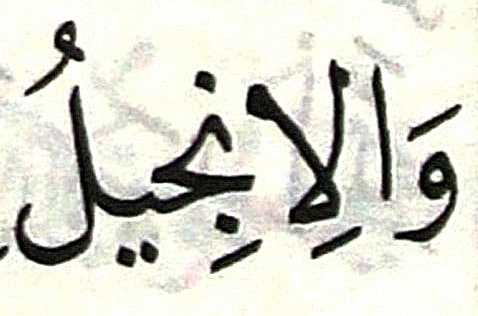 وَالِانجِيلُ